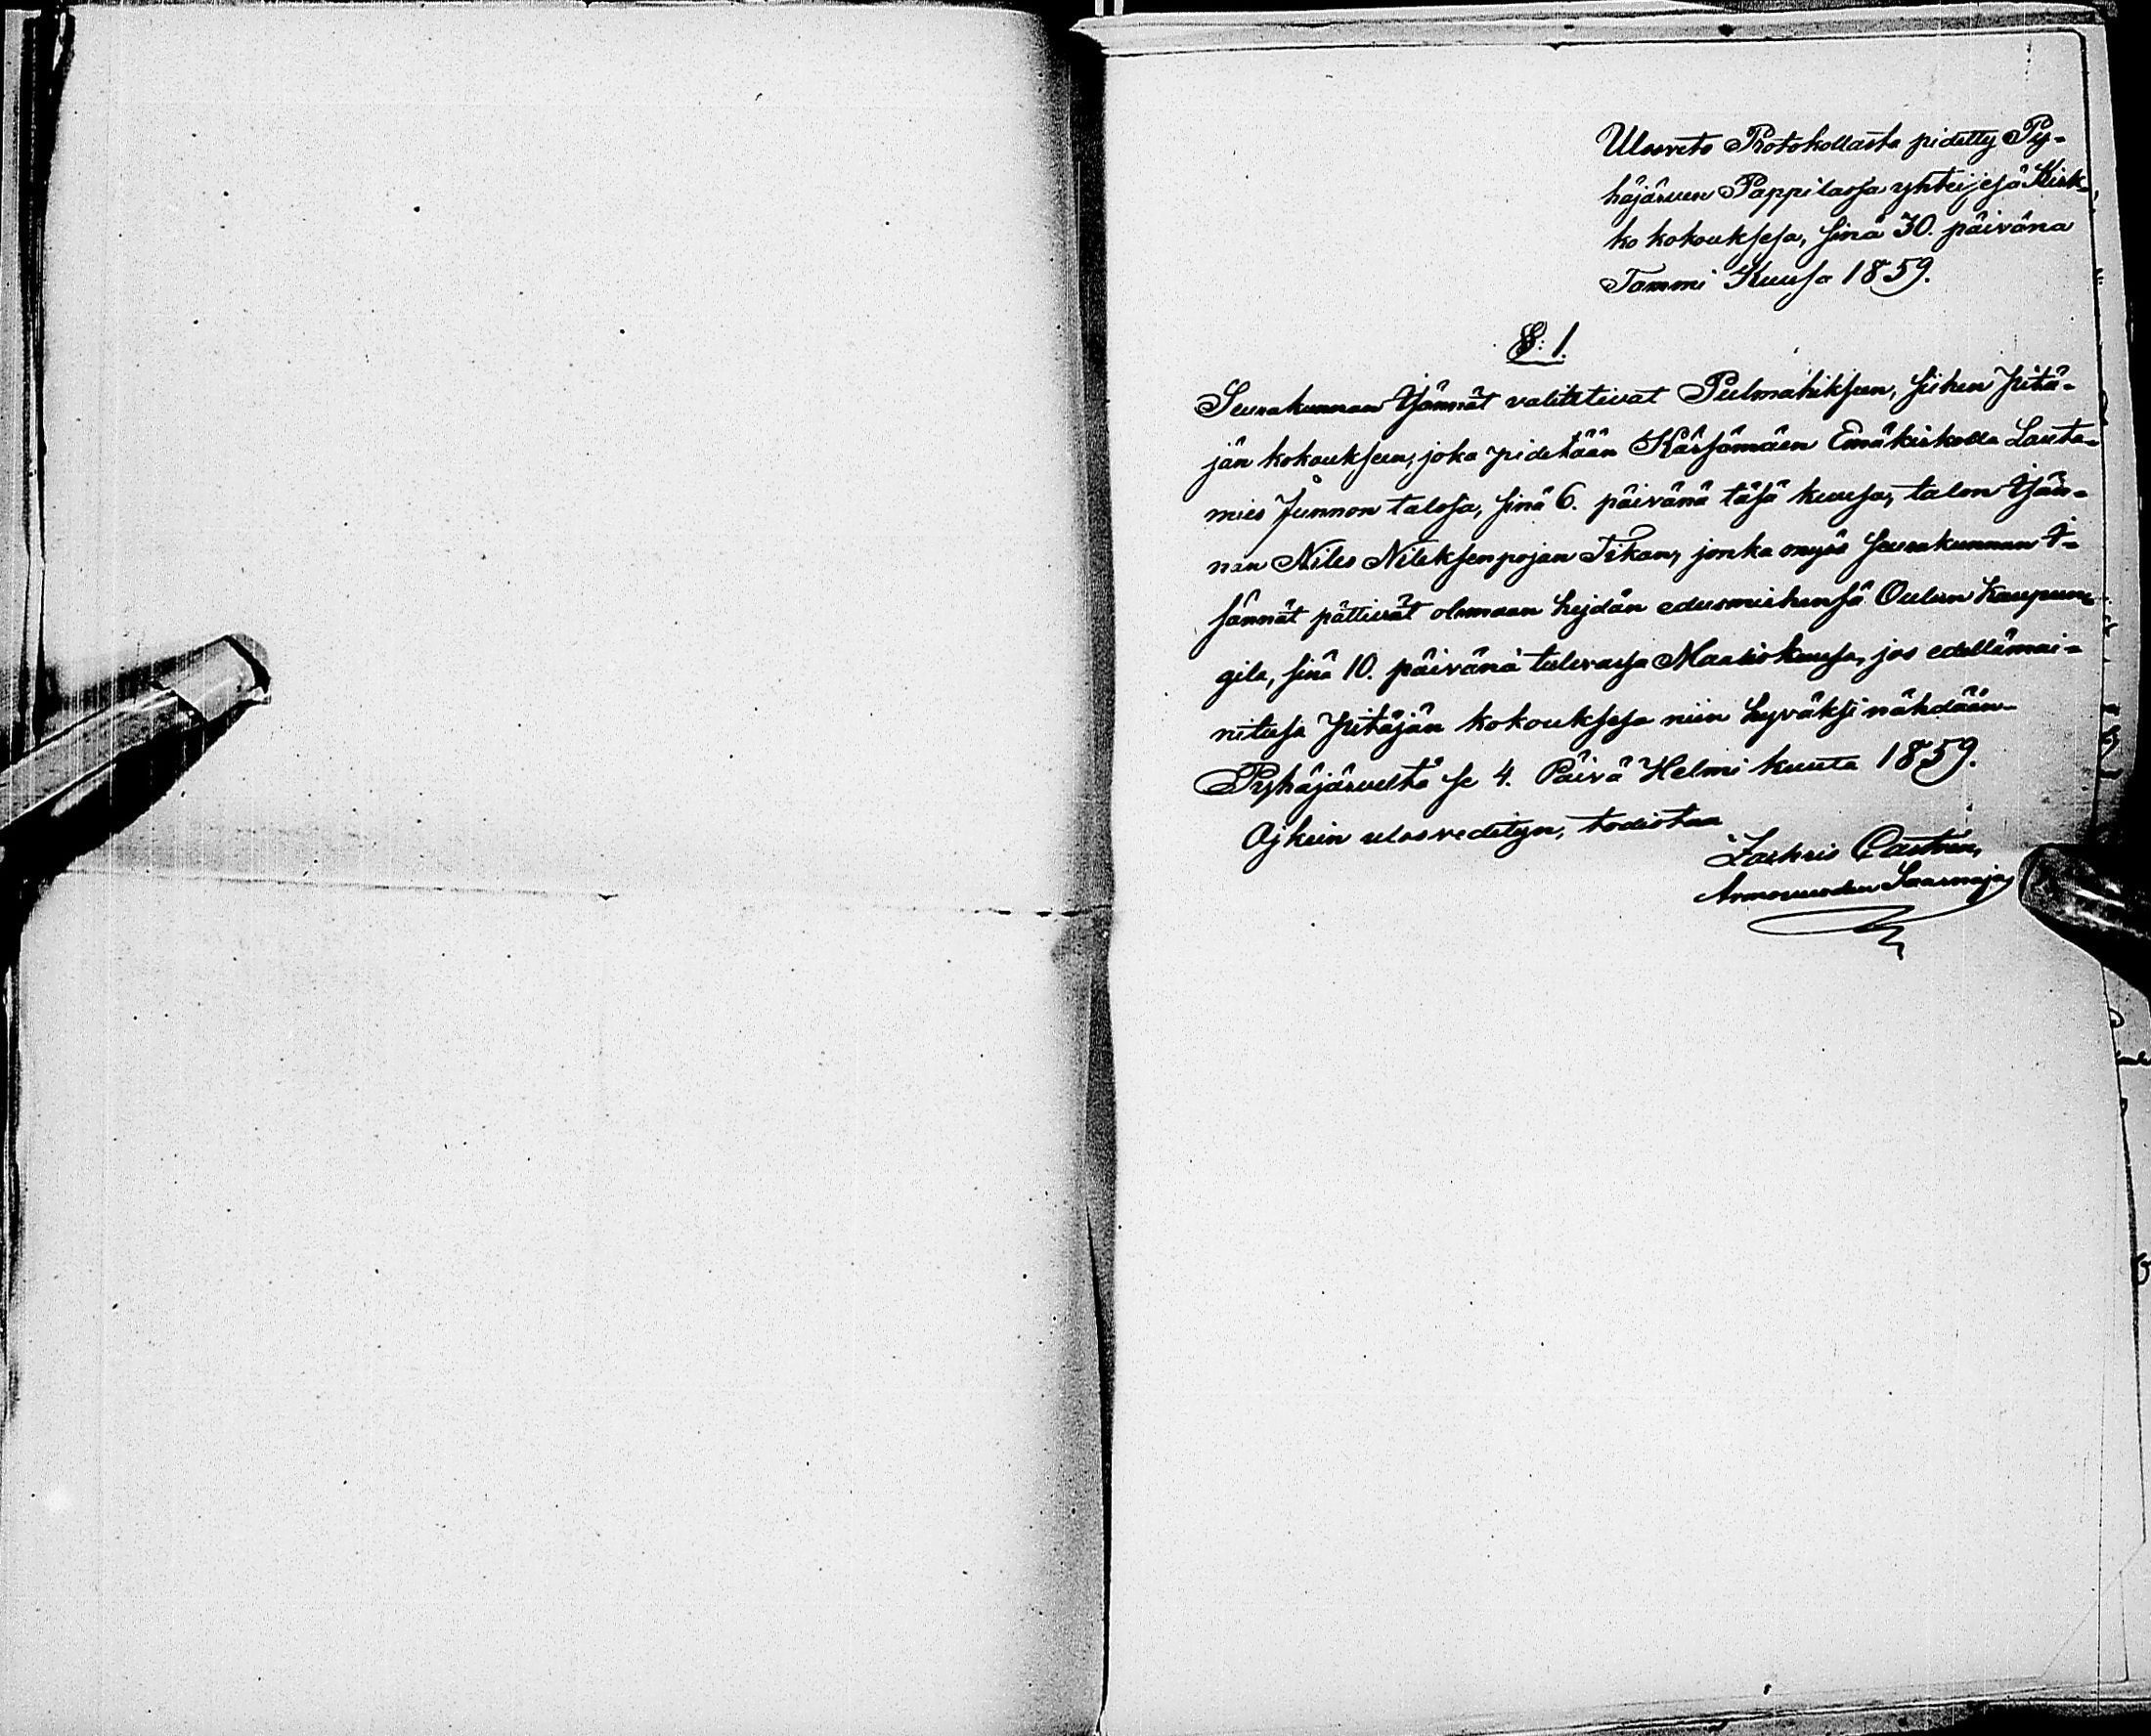 Ulosveto Protokollasta pidetty Py-
häjärven Pappilassa yhteisesä Kirk-
ko kokouksesa, sinä 30. päivänä
Tammi Kuusa 1859.
§: 1.
Seurakunnan Isännät valititivat Pulmahiksen, siihen Pitä-
jän kokoukseen, joka pidetään Kärsämäen Emäkirkolla Lauta-
mies Junnon talosa, sinä 6. päivänä täsä kuusa, talon Isän-
nän Niles Nileksenpojan Tikan, jonka myös seurakunnan I-
sännät pättivät olemaan heidän edusmiehensä Oulun Kaupun-
gila, sinä 10. päivänä tulevassa Maaliskuusa, jos edellämai-
nitusa Pitäjän kokouksesa niin hyväksi nähdään.
Pyhäjärveltä se 4. Päivä Helmi kuuta 1859.
Ojkein ulosvedetyn, todistaa
Zachris Castrén,
Armovuoden Saarnaja